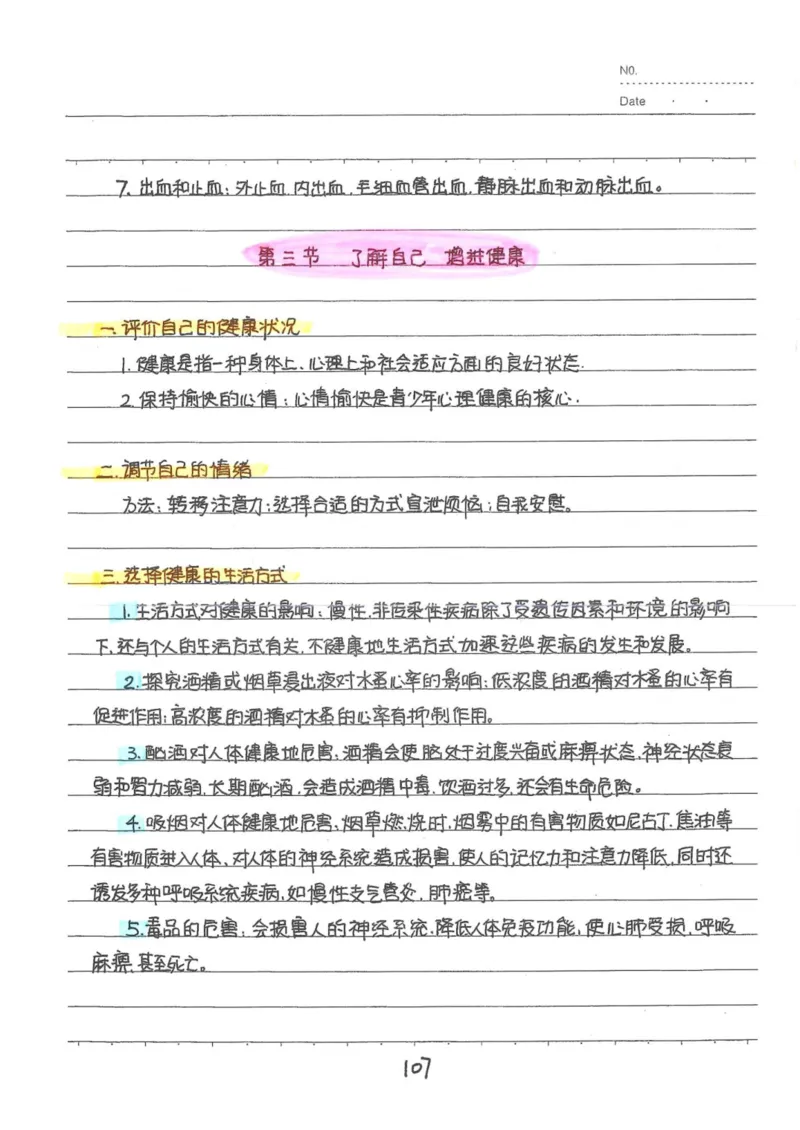 NO.
Date
7. 出血和止血：外止血.内出血.毛细血管出血.静脉出血和动脉出血。
第三节 了解自己 增进健康
一.评价自己的健康状况
1.健康是指一种身体上、心理上和社会适应方面的良好状态.
2.保持愉快的心情；心情愉快是青少年心理健康的核心.
二.调节自己的情绪
方法：转移注意力；选择合适的方式宣泄烦恼；自我安慰。
三.选择健康的生活方式
1.生活方式对健康的影响：慢性.非传染性疾病除了受遗传因素和环境的影响
下.还与个人的生活方式有关.不健康地生活方式加速这些疾病的发生和发展。
2.探究酒精或烟草浸出液对水蚤心率的影响：低浓度的酒精对水蚤的心率有
促进作用；高浓度的酒精对水蚤的心率有抑制作用。
3.酗酒对人体健康地危害：酒精会使脑处于过度兴奋或麻痹状态.神经状态衰
弱和智力减弱.长期酗酒.会造成酒精中毒.饮酒过多.还会有生命危险。
4.吸烟对人体健康地危害：烟草燃烧时.烟雾中的有害物质如尼古丁.焦油等
有害物质进入人体、对人体的神经系统造成损害.使人的记忆力和注意力降低.同时还
诱发多种呼吸系统疾病.如慢性支气管炎.肺癌等。
5.毒品的危害：会损害人的神经系统.降低人体免疫功能，使心肺受损.呼吸
麻痹.甚至死亡。
107